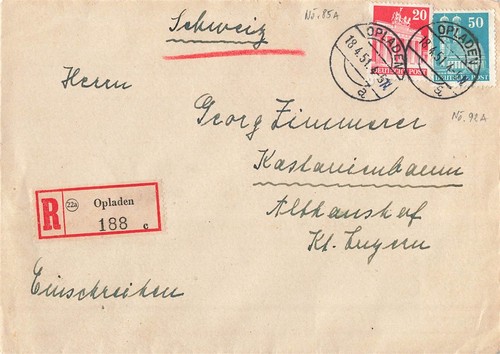 Schweiz
No. 85A
20
DEUTSCHE POST
50
DEUTSCHE POST
OPLADEN
18.4.51
a
OPLADEN
18.4.51
No. 92A
Herrn
Georg Zimmerer
Kastanienbaum
Althaushof
Kt. Luzern
R
22a
Opladen
188 c
Einschreiben